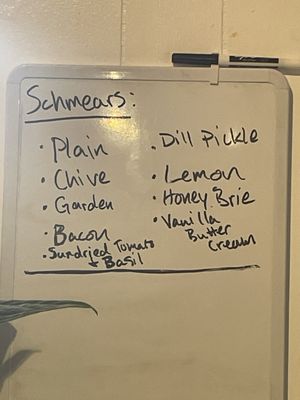 Schmears:
· Plain
· Chive
· Garden
· Bacon
· Sundried Tomato
+ Basil
· Dill Pickle
· Lemon
· Honey Brie
· Vanilla
Butter
Cream